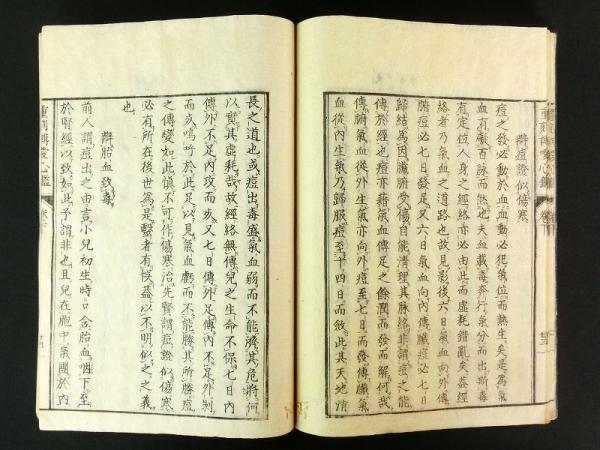 辨痘證似傷寒
痘之發必動於血血動必犯氣位而熱生矣是爲氣
血有礙百脉而然也夫血載毒奔行氣分而出斯毒
有定位人身之經絡亦必由此而虛耗錯亂矣蓋經
絡者乃氣血之道路也故見影後六日氣血向外傳
腑痘必七日發足又六日氣血向內傳臟痘必七日
歸結爲因臟腑受傷自能清理其脉絡非謂痘之能
傳於經也痘亦藉氣血傳足之餘潤而發而解何哉
傳腑氣血從外生氣亦向外痘至七日而發傳臟氣
血從內生氣乃歸服痘至十四日而斂此其天地消
長之道也或痘出毒盛氣血弱而不能濟其危將何
以質其虛耗哉故經絡無傳兒之生命不保七日內
傳外不足內攻而亥又七日傳外足傳內不足外剝
而亥嗚呼於此足以見氣血虧而不能勝其所勝痘
之傳變如此慎不可作傷寒治先賢謂痘證似傷寒
必有所在後世爲是醫者有悮蓋以不明似之之義
也
辨胎血致毒
前人謂痘出之由言小兒初生時口含胎血咽下至
於腎經以致如此予謂非也且兒在胞中氣團於內
重訂傳心鑑 卷下